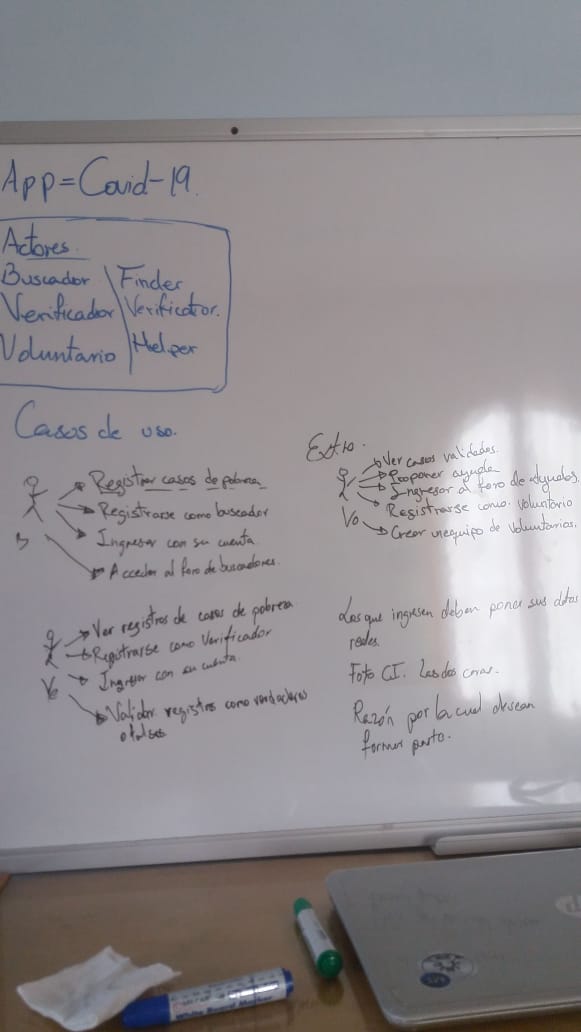 App = Covid-19.
Actores.
Buscador \ Finder
Verificador \ Verificator.
Voluntario / Helper
Casos de uso.
Registrar casos de pobreza
Registrarse como buscador
Ingresar con su cuenta
Acceder al foro de buscadores.
B
Ver registros de casos de pobreza
Registrarse como Verificador
Ingresar con su cuenta.
Ve
Validar registros como verdaderos
o falsos
Extra.
Ver casos validados.
Proponer ayuda
Ingresar al foro de ayudas.
Registrarse como voluntario
Vo
Crear un equipo de Voluntarios.
Los que ingresen deben poner sus datos
reales.
Foto CI. Las dos caras.
Razón por la cual desean
formar parte.
White Board Marker
hp